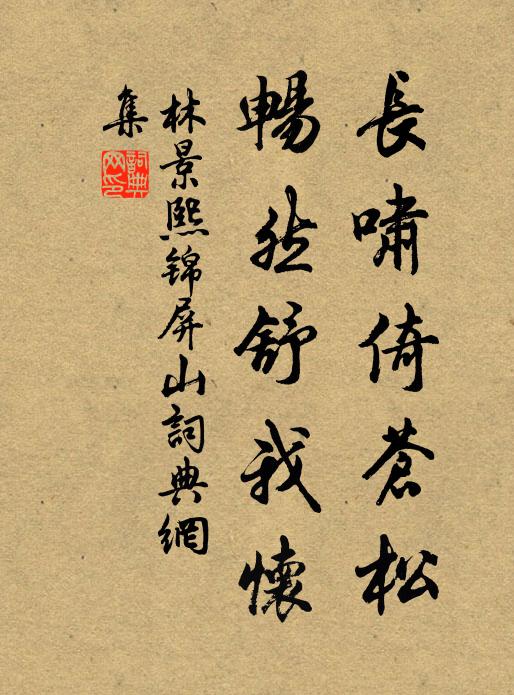 長嘯倚蒼松
暢然舒我懷
林景熙錦屏山詞典網
集
詞典网印